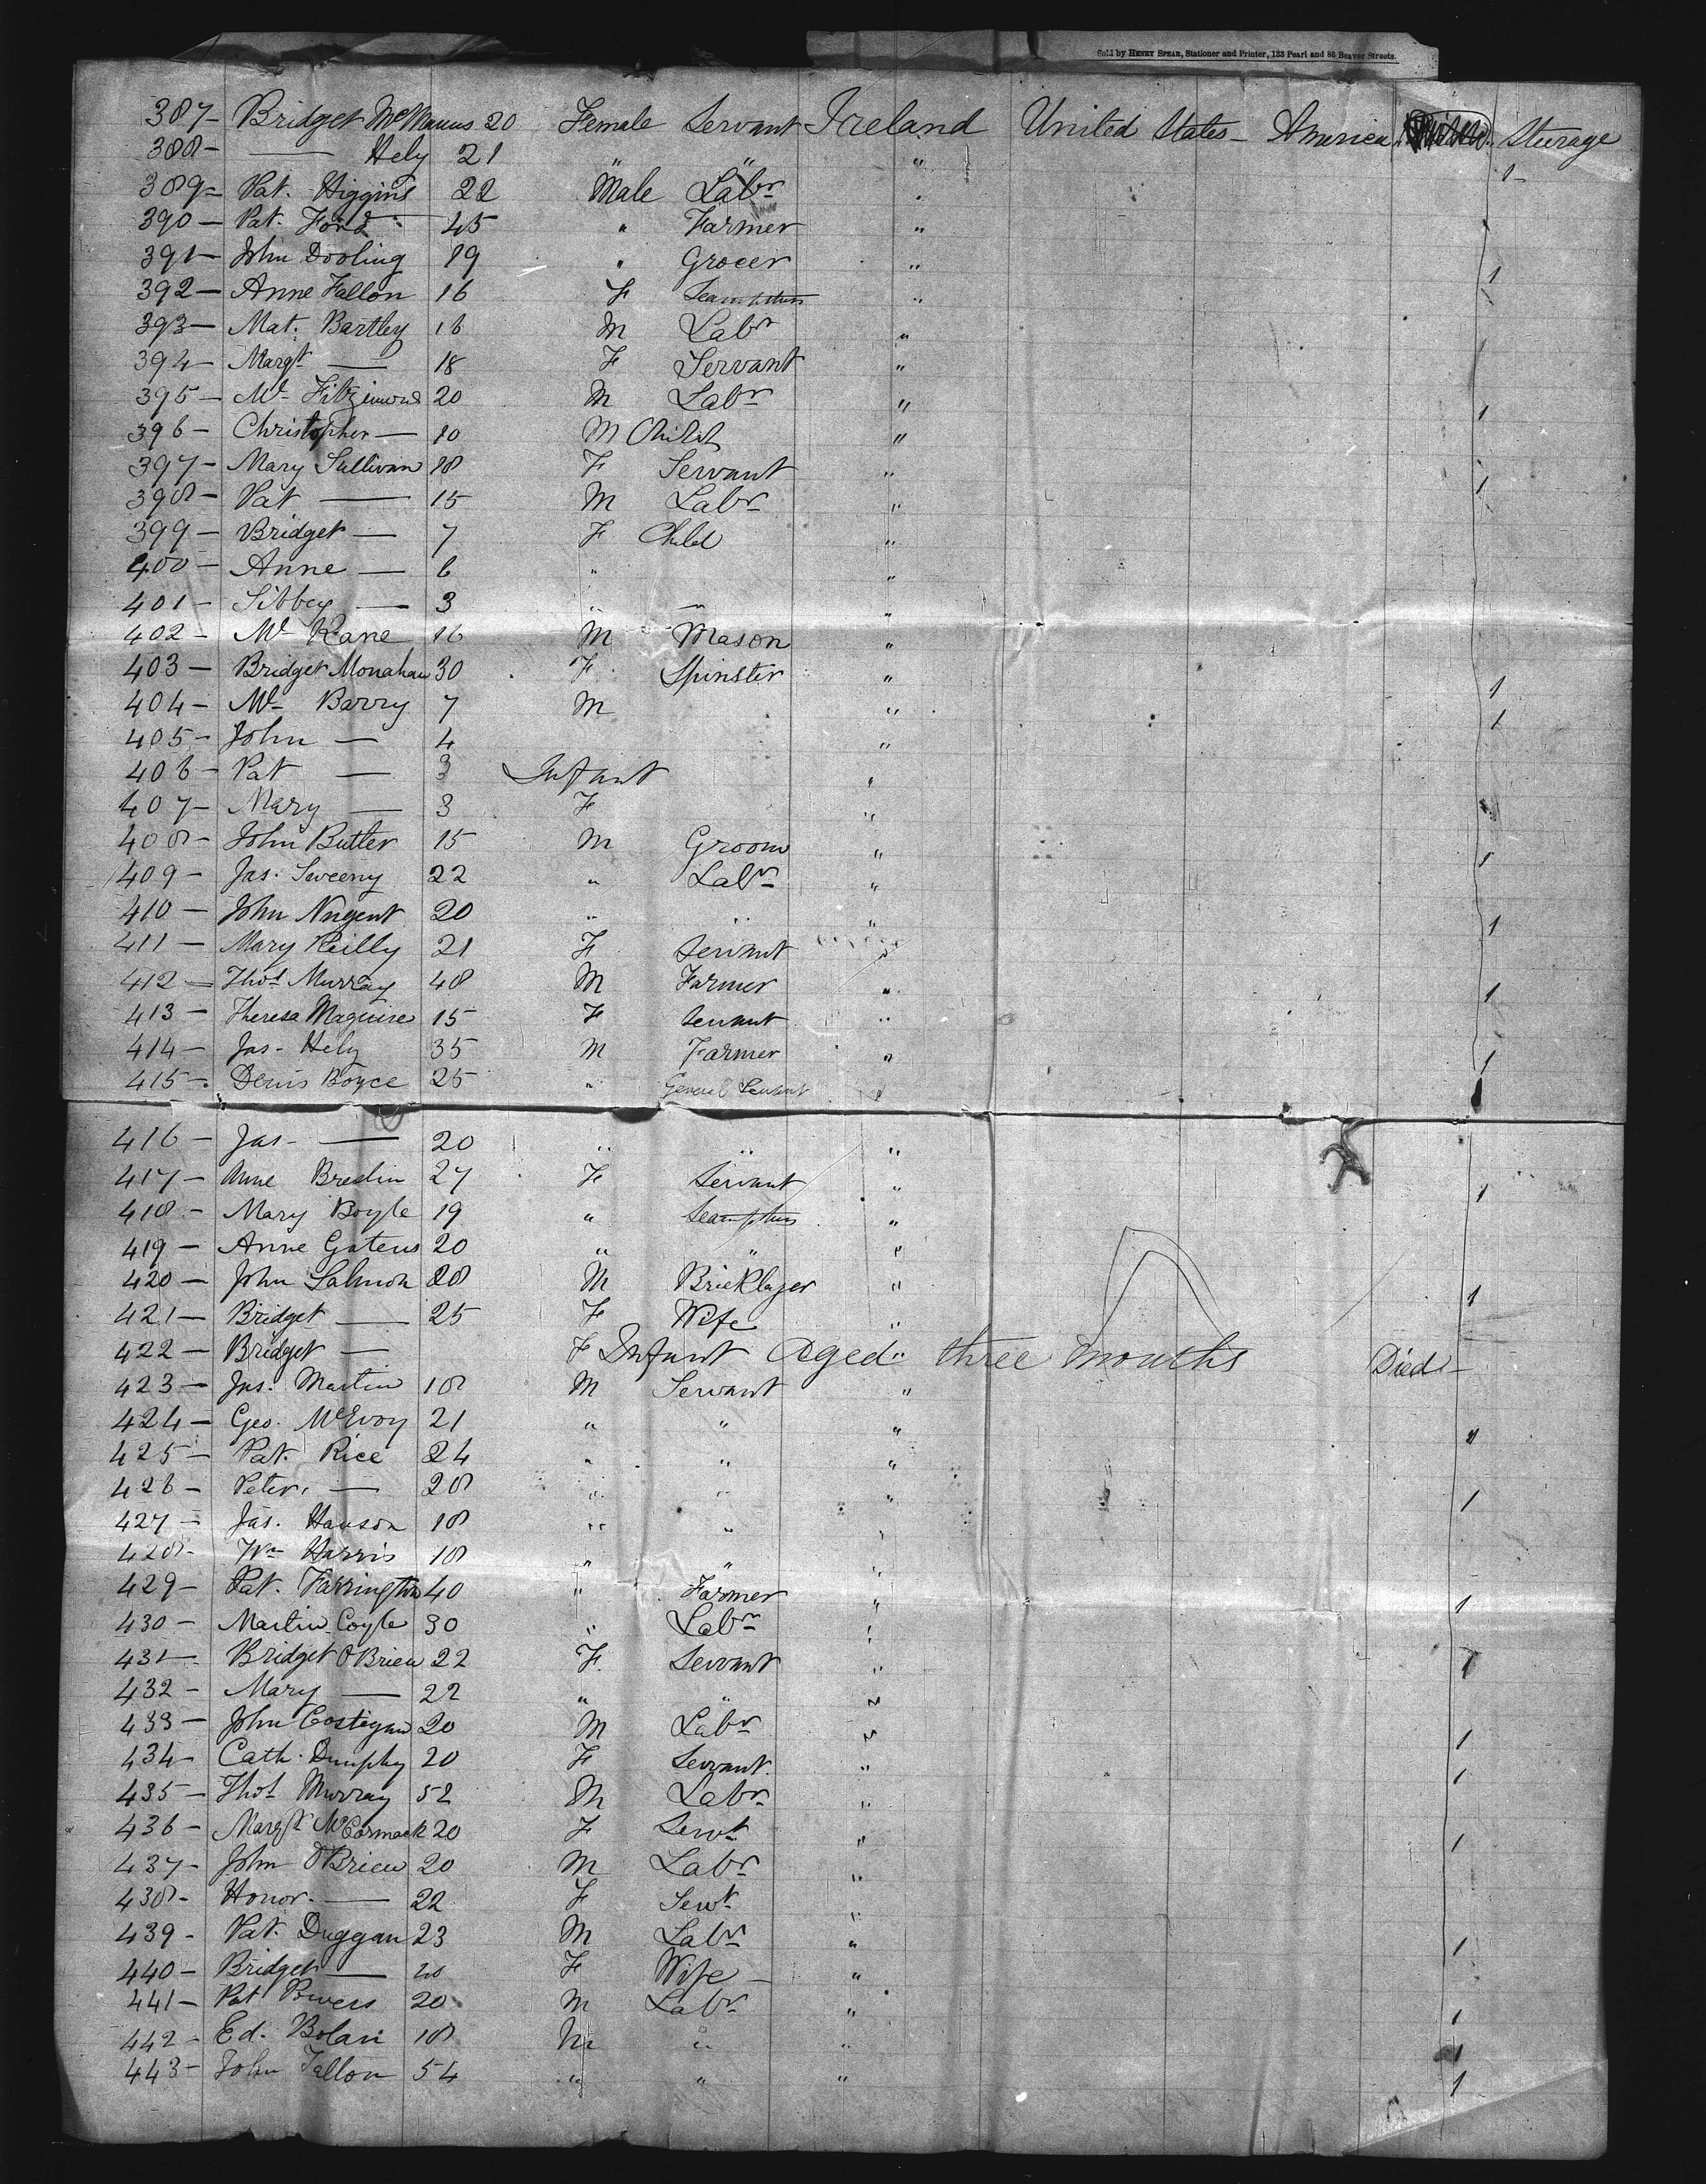 Sold by HENRY SPEAR, Stationer and Printer, 133 Pearl and 86 Beaver Streets.
387 - Bridget McManus 20 Female Servant Ireland United States - America Steerage
388 - — Hely 21 " " "
389 - Pat. Higgins 22 Male Labr "
390 - Pat. Ford 45 " Farmer "
391 - John Dooling 19 " Grocer "
392 - Anne Fallon 16 F "
393 - Mat. Bartley 16 M Labr "
394 - Margt — 18 F Servant "
395 - Ml Fitzimons 20 M Labr "
396 - Christopher — 10 M Child "
397 - Mary Sullivan 18 F Servant "
398 - Pat — 15 M Labr "
399 - Bridget — 7 F Child "
400 - Anne — 6 " "
401 - Sibbey — 3 " "
402 - Ml Kane 16 M Mason "
403 - Bridget Monahan 30 F Spinster "
404 - Ml Barry 7 M "
405 - John — 4 "
406 - Pat — 3 Infant "
407 - Mary — 3 F "
408 - John Butler 15 M Groom "
409 - Jas. Sweeny 22 " Labr "
410 - John Nugent 20 " " "
411 - Mary Reilly 21 F Servant "
412 - Thos Murray 48 M Farmer "
413 - Theresa Maguire 15 F Servant "
414 - Jas - Hely 35 M Farmer "
415 - Denis Boyce 25 " General Servant "
416 - Jas - — 20 " " "
417 - Anne Breslin 27 F Servant "
418 - Mary Boyle 19 " "
419 - Anne Gatens 20 " " "
420 - John Salmon 28 M Bricklayer "
421 - Bridget — 25 F Wife "
422 - Bridget — F Infant Aged three months Died -
423 - Jas. Martin 18 M Servant "
424 - Geo. McEvoy 21 " " "
425 - Pat. Rice 24 " " "
426 - Peter. — 28 " " "
427 - Jas. Hanson 18 " " "
428 - Wm Harris 18 " " "
429 - Pat. Farrington 40 " Farmer "
430 - Martin Coyle 30 " Labr "
431 - Bridget O'Brien 22 F. Servant "
432 - Mary — 22 " " "
433 - John Costigan 20 M Labr "
434 - Cath. Dunphy 20 F Servant "
435 - Thos Murray 52 M Labr "
436 - Margt McCormack 20 F Servt "
437 - John O'Brien 20 M Labr "
438 - Honor. — 22 F Servt "
439 - Pat. Duggan 23 M Labr "
440 - Bridget — F Wife - "
441 - Pat Powers 20 M Labr "
442 - Ed. Bolan 18 M " "
443 - John Fallon 54 " " "